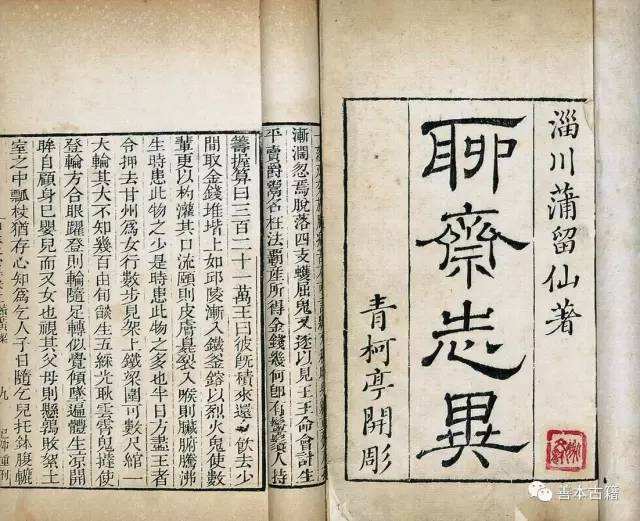 淄川蒲留仙著
聊齋志異
青柯亭開彫
漸濶忽焉脫落四支蠖屈鬼又逐以見王王命會計生
平賣爵鬻名枉法覇產所得金錢幾何即有鬚人持
籌握算曰三百二十一萬王曰彼旣積來還飲去少
間取金錢堆堦上如邱陵漸入鐵釜鎔以烈火鬼使數
輩更以杓灌其口流頤則皮膚臭裂入喉則臟腑騰沸
生時患此物之少是時患此物之多也半日方盡王者
令押去甘州爲女行數步見架上鐵梁圍可數尺綰一
大輪其大不知幾百由旬燄生五綵光耿雲霄鬼撻使
登輪方合眼躍登則輪隨足轉似覺傾墜遍體生凉開
眸自顧身已嬰兒而又女也視其父母則懸鶉敗絮土
室之中瓢杖猶存心知爲乞人子日隨乞兒托鉢腹轆
九
善本古籍